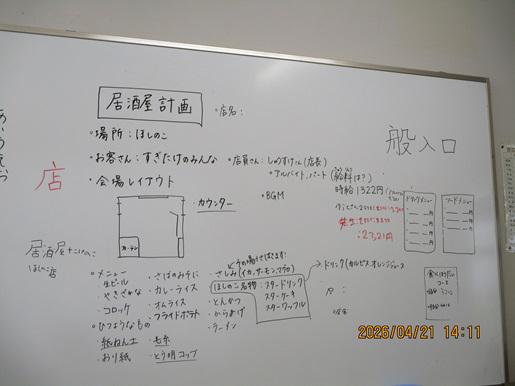 居酒屋計画
・店名：
・場所：ほしのこ
・お客さん：すぎたけのみんな
・店員さん：しゅうすけくん(店長)
・アルバイト,パート(給料は？)
時給1322円
・会場レイアウト
カウンター
カーテン
・BGM
般入口
店
居酒屋
ほしのこ店
ドリンクメニュー
フードメニュー
・メニュー
生ビール
・やきざかな
・コロッケ
・さばのみそに
・カレーライス
・オムライス
・フライドポテト
・さしみ(イカ,サーモン,マグロ)
ほしのこ名物：スタードリンク
スターケーキ
スターワッフル
・とんかつ
・からあげ
・ラーメン
・ドリンク(カルピス,オレンジジュース
・ひつようなもの
・紙ねん土
・おり紙
・毛糸
・とう明コップ
コース
2026/04/21 14:11